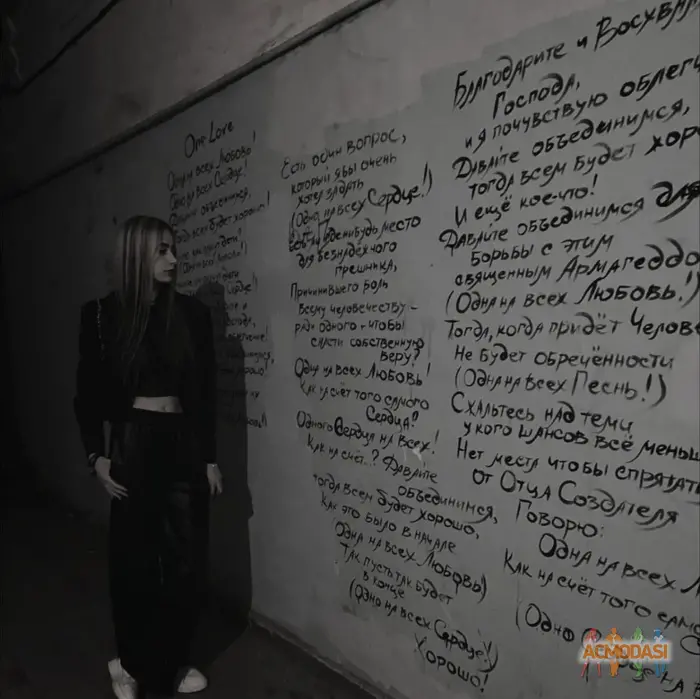 One Love
Одна на всех Любовь!
Одно на всех Сердце!
Давайте объединимся,
тогда всем будет хорошо!
(Одна на всех Любовь!)
Есть один вопрос,
который я бы очень
хотел задать
(Одно на всех Сердце!)
Есть ли где-нибудь место
для безнадёжного
грешника,
Причинившего боль
всему человечеству –
ради одного – чтобы
спасти собственную
веру?
Одна на всех Любовь!
Как на счёт того самого
Сердца?
Одного Сердца на всех!
Как на счёт..? Давайте
объединимся,
тогда всем будет хорошо,
Как это было в начале
Одна на всех Любовь)
Так пусть так будет
в конце
(Одно на всех Сердце!)
Хорошо!
Благодарите и Восхваляйте
Господа,
и я почувствую
Давайте объединимся,
тогда всем будет
И ещё кое-что!
Давайте объединимся для
борьбы с этим
священным Армагеддо
(Одна на всех Любовь!)
Тогда, когда придёт Челове
Не будет обречённости
(Одна на всех Песнь!)
Сжальтесь над теми
у кого шансов всё меньш
Нет места чтобы спрятать
от Отца Создателя
Говорю:
Одна на всех Л
Как на счёт того само
(Одно на
ACMODASI